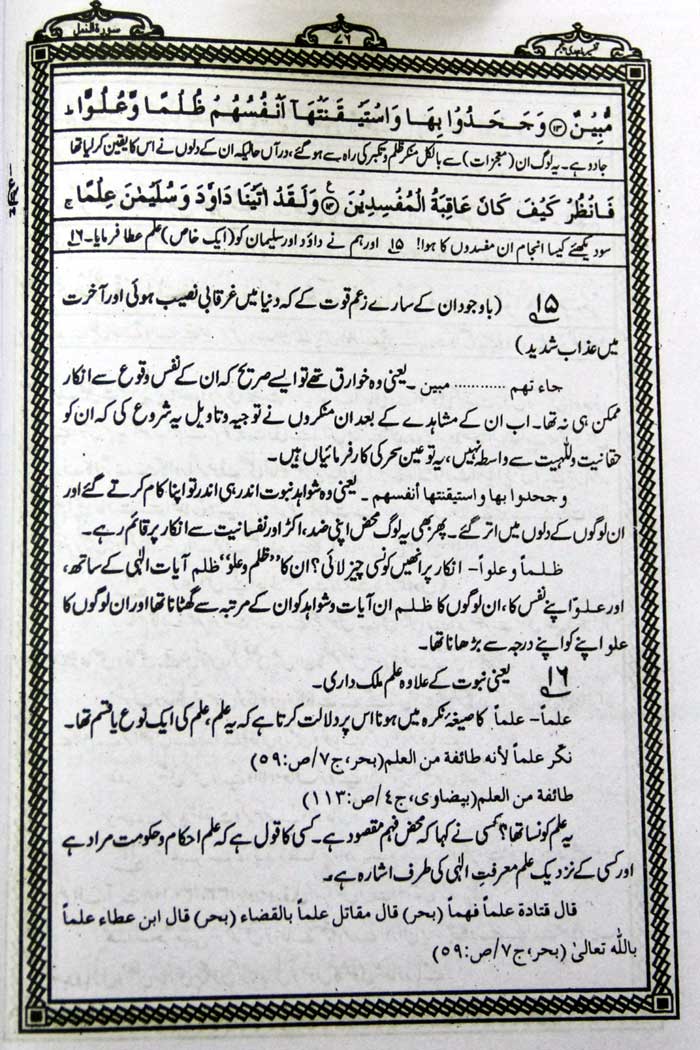 تفسیر ماجدی پنجم ۷۶ سورة النمل
مُّبِيْنٌ ﴿۱۳﴾ وَجَحَدُوْا بِهَا وَاسْتَيْقَنَتْهَآ اَنْفُسُهُمْ ظُلْمًا وَّعُلُوًّا ؕ
جادو ہے۔ یہ لوگ ان (معجزات) سے بالکل منکر ظلم و تکبر کی راہ سے ہو گئے، درآں حالیکہ ان کے دلوں نے اس کا یقین کر لیا تھا
فَانْظُرْ كَيْفَ كَانَ عَاقِبَةُ الْمُفْسِدِيْنَ ﴿۱۴﴾ وَلَقَدْ اٰتَيْنَا دَاوٗدَ وَسُلَيْمٰنَ عِلْمًا ۚ
سو دیکھئے کیسا انجام ان مفسدوں کا ہوا! ۱۵ اور ہم نے داؤد اور سلیمان کو (ایک خاص) علم عطا فرمایا۔ ۱۶
۱۵ (باوجود ان کے سارے زعم قوت کے کہ دنیا میں غرقابی نصیب ہوئی اور آخرت
میں عذاب شدید)
جاء تهم ............ مبین ۔ یعنی وہ خوارق تھے تو ایسے صریح کہ ان کے نفس وقوع سے انکار
ممکن ہی نہ تھا۔ اب ان کے مشاہدے کے بعد ان منکروں نے توجیہ و تاویل یہ شروع کی کہ ان کو
حقانیت وللہیت سے واسطہ نہیں، یہ تو عین سحر کی کارفرمائیاں ہیں۔
وجحدوا بها واستيقنتها أنفسهم ۔ یعنی وہ شواہد نبوت اندر ہی اندر تو اپنا کام کرتے گئے اور
ان لوگوں کے دلوں میں اتر گئے۔ پھر بھی یہ لوگ محض اپنی ضد، اکڑ اور نفسانیت سے انکار پر قائم رہے۔
ظلماً وعلواً - انکار پر انھیں کونسی چیز لائی؟ ان کا ’’ظلم وعلو‘‘ ظلم آیات الٰہی کے ساتھ،
اور علو اپنے نفس کا، ان لوگوں کا ظلم ان آیات و شواہد کو ان کے مرتبہ سے گھٹانا تھا اور ان لوگوں کا
علو اپنے کو اپنے درجہ سے بڑھانا تھا۔
۱۶ یعنی نبوت کے علاوہ علم ملک داری۔
علماً - علماً کا صیغۂ نکرہ میں ہونا اس پر دلالت کرتا ہے کہ یہ علم، علم کی ایک نوع یا قسم تھا۔
نكّر علماً لأنه طائفة من العلم (بحر، ج۷/ص:۵۹)
طائفة من العلم (بیضاوی، ج٤/ص:۱۱۳)
یہ علم کونسا تھا؟ کسی نے کہا کہ محض فہم مقصود ہے۔ کسی کا قول ہے کہ علم احکام و حکومت مراد ہے
اور کسی کے نزدیک علم معرفتِ الٰہی کی طرف اشارہ ہے۔
قال قتادة علماً فهماً (بحر) قال مقاتل علماً بالقضاء (بحر) قال ابن عطاء علماً
بالله تعالیٰ (بحر، ج۷/ص:۵۹)